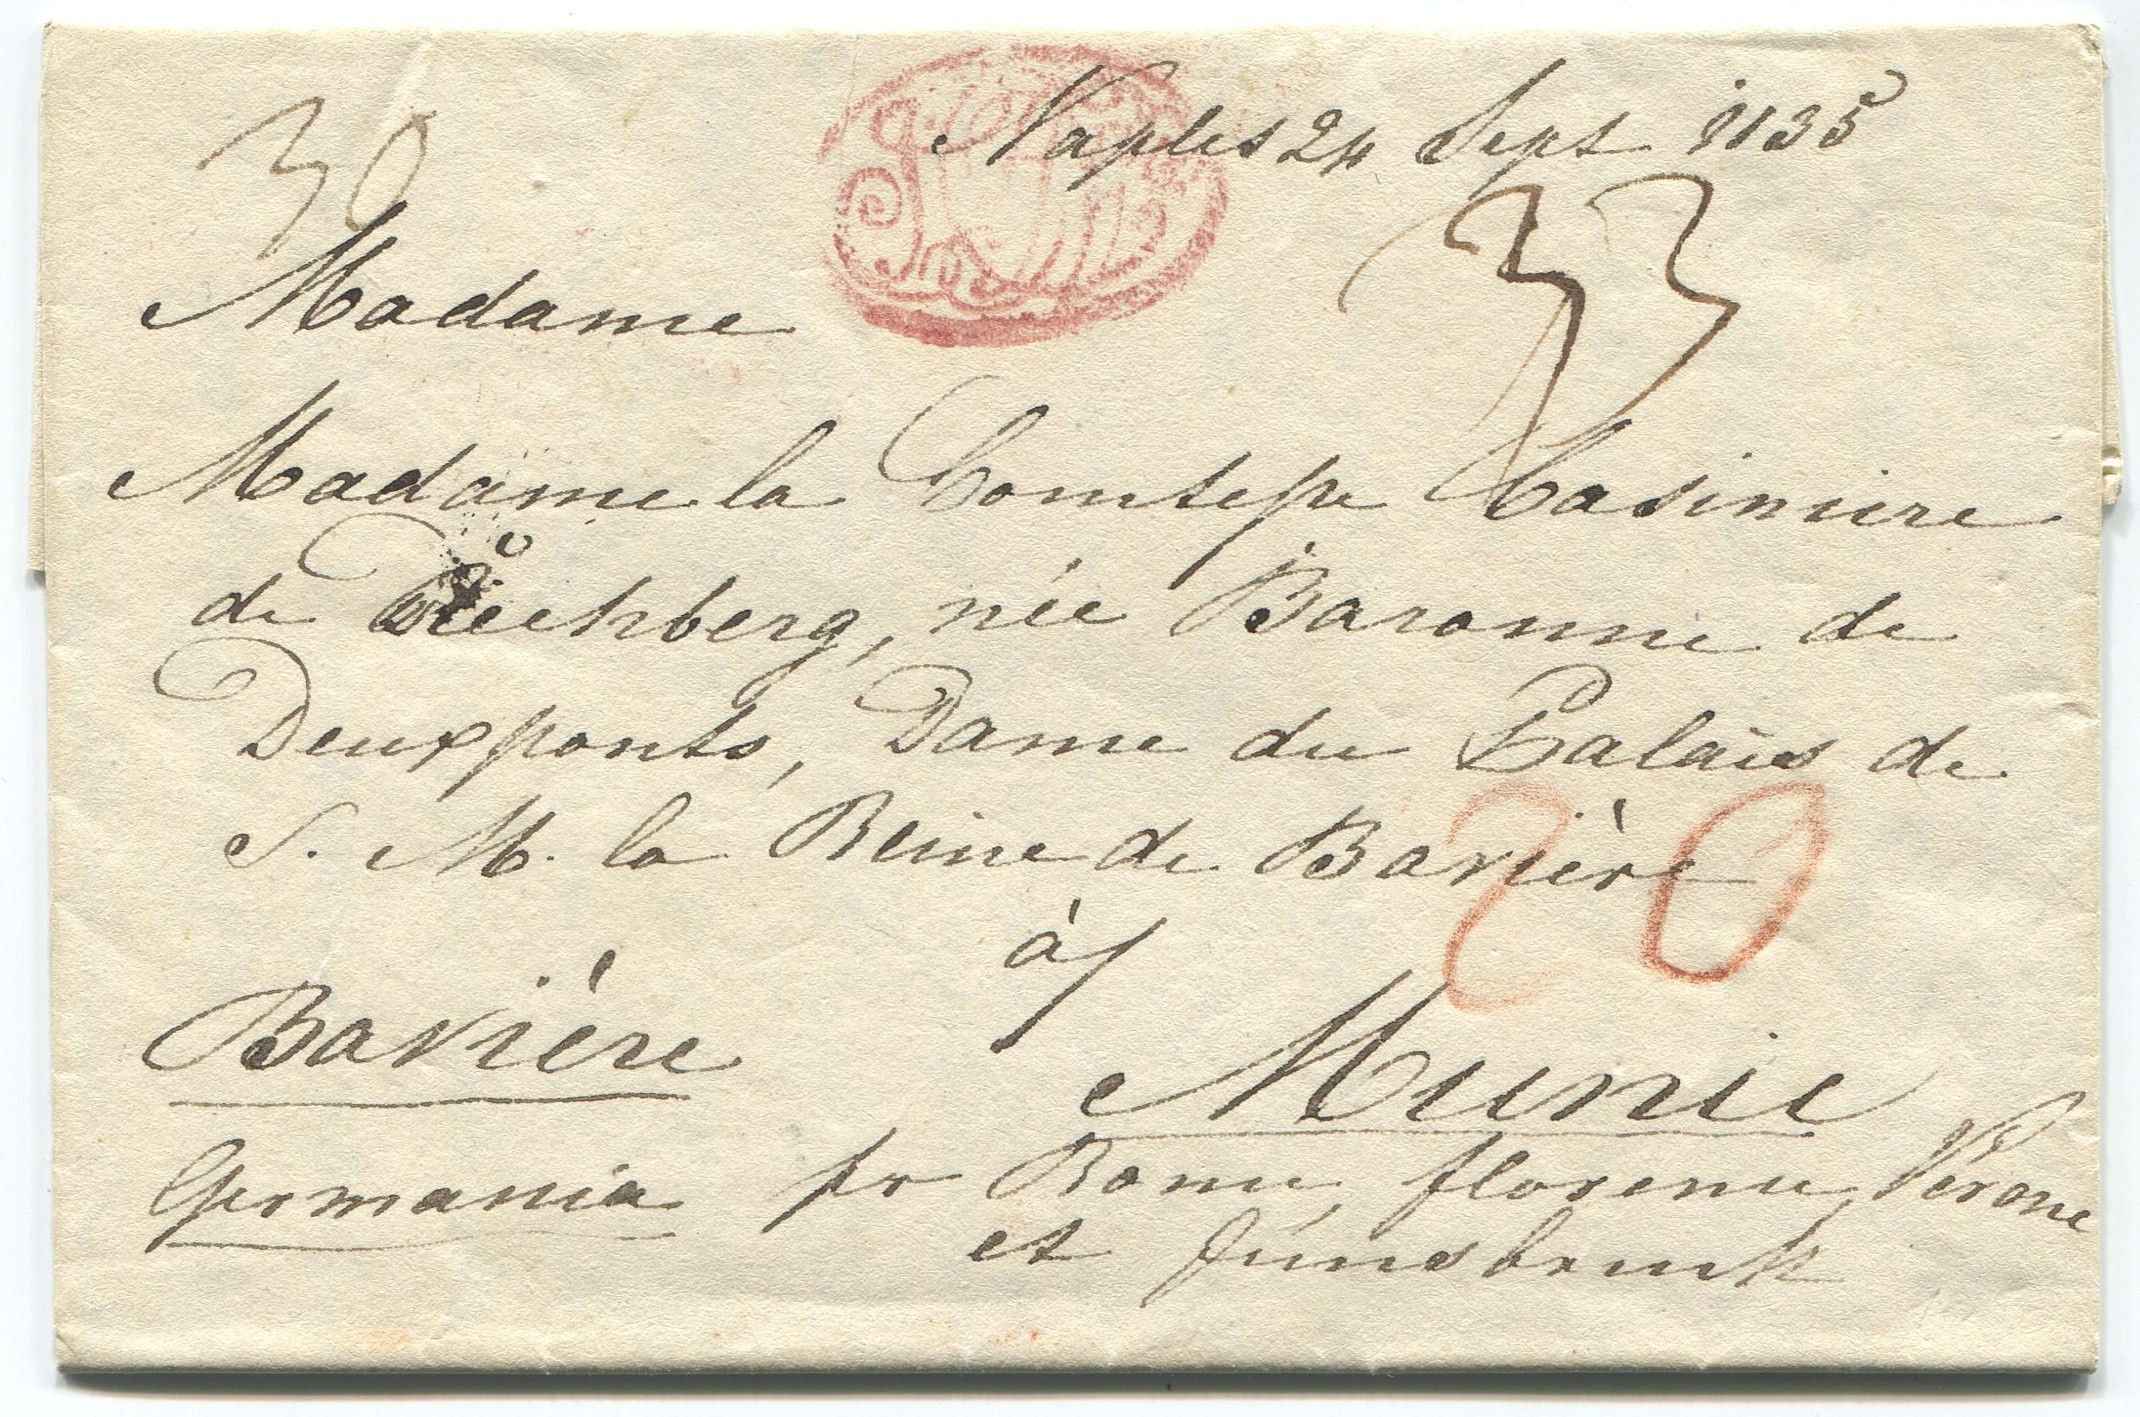 Naples 24 Sept 1835
30
33
Madame
Madame la Comtesse Casimire
de Rechberg, née Baronne de
Deuxponts, Dame du Palais de
S. M. la Reine de Bavière
20
à
Bavière
Munic
Germania pr Rome, florence, Vérone
et Jnnsbruck